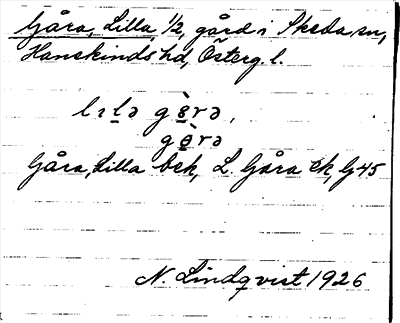 Gåra, Lilla, 1/2, gård i Skeda sn,
Hanekinds hd, Österg. l.
lɪlə gɵ̀rə,
gɵ̀rə
Gåra, Lilla bek, L. Gåra Ek, G 45
N. Lindqvist 1926